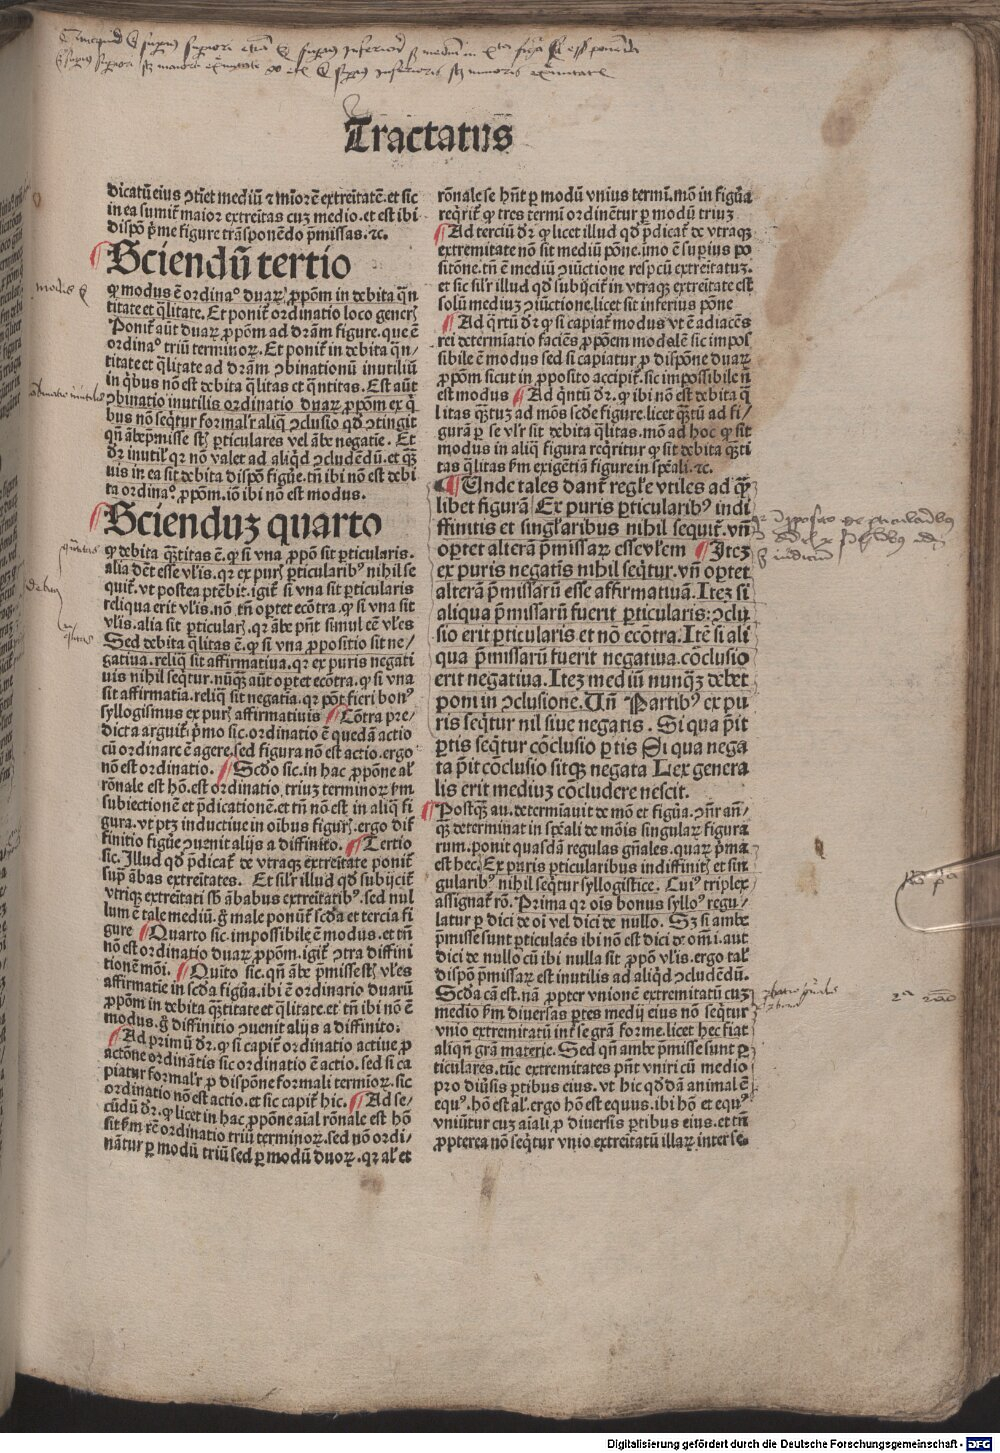 Tractatus
dicatū eius ↄtiēt mediū ⁊ mīorē extreītatē. et sic
in ea sumit̄ maior extreītas cuȝ medio. et est ibi
dispō p̄me figure trāsponēdo p̄missas. ⁊c.
Sciendū tertio
ꝙ modus ē ordinaᵒ duaꝝ ꝓpōm in debita q̄n
titate et q̄litate. Et ponit̄ ordinatio loco generꝭ
Ponit̄ aūt duaꝝ ꝓpōm ad dr̄am figure. que ē
ordinaᵒ triū terminoꝝ. Et ponit̄ in debita q̄n/
titate et q̄litate ad dr̄am ↄbinationū inutiliū
in q̄bus nō est debita q̄litas et q̄ntitas. Est aūt
ↄbinatio inutilis ordinatio duaꝝ ꝓpōm ex q̄
bus nō seq̄tur formalr̄ aliq̄ ↄclusio qd̄ ↄtingit
qn̄ ābep̄misse st̄ ꝑticulares vel ābe negatie. Et
dr̄ inutil̄ qr̄ nō valet ad aliq̄d ↄcludēdū. et q̄ȝ
uis in ea sit debita dispō figūe. tn̄ ibi nō est debi
ta ordinaᵒ. ꝓpōm. iō ibi nō est modus.
Scienduȝ quarto
ꝙ debita q̄ȝtitas ē. ꝙ si vna ꝓpō sit ꝑticularis.
alia dēt esse vl̄is. qr̄ ex purꝭ ꝑticularibꝰ nihil se
quit̄. vt postea ptēbit̄. igit̄ si vna sit ꝑticularis
reliqua erit vl̄is. nō tn̄ oꝑtet ecōtra. ꝙ si vna sit
vl̄is. alia sit ꝑticularꝭ. qr̄ ābe pn̄t simul eē vl̄es
Sed debita q̄litas ē. ꝙ si vna ꝓpositio sit ne/
gatiua. reliq̄ sit affirmatiua. qr̄ ex puris negati
uis nihil seq̄tur. nūq̄ȝ aūt oꝑtet ecōtra. ꝙ si vna
sit affirmatia. reliq̄ sit negatīa. qr̄ pōt fieri bonꝰ
syllogismus ex purꝭ affirmatiuis Cōtra pre/
dicta arguit̄. p̄mo sic. ordinatio ē quedā actio
cū ordinare ē agere. sed figura nō est actio. ergo
nō est ordinatio. Scd̄o sic. in hac ꝓpōne al̄
rōnale est hō. est ordinatio triuȝ terminoꝝ ẜm
subiectionē et p̄dicationē. et tn̄ nō est in aliq̄ fi
gura. vt ptȝ inductiue in oībus figurꝭ. ergo dif̄
finitio figūe ↄuenit alijs a diffinito. Tertio
sic. Illud qd̄ p̄dicat̄ de vtraq̄ȝ extreītate ponit̄
sup̄ ābas extreītates. Et silr̄ illud qd̄ subijcit̄
vtriq̄ȝ extreītati sb̄ ābabus extreītatibꝰ. sed nul
lum ē tale mediū. g̊ male ponūt̄ scd̄a et tercia fi
gure Quarto sic. impossibile ē modus. et tn̄
nō est ordinatio duaꝝ ꝓpōm. igit̄ ↄtra diffini
tionē mōi. Quito sic. qn̄ ābe p̄misse st̄ vl̄es
affirmatie in scd̄a figūa. ibi ē ordinatio duarū
ꝓpōm in debita q̄ȝtitate et q̄litate. et tn̄ ibi nō ē
modus. g̊ diffinitio ↄuenit alijs a diffinito:
Ad primū dr̄. ꝙ si capit̄ ordinatio actiue ꝓ
actōne ordināntis sic ordinatio ē actio. sed si ca
piatur formalr̄ ꝓ dispōne formali termīoꝝ. sic
ordinatio nō est actio. et sic capit̄ hic. Ad se/
cūdū dr̄. ꝙ licet in hac ꝓpōne aīal rōnale est hō
sit ẜm rē ordinatio triū terminoꝝ. sed nō ordi/
nātur ꝑ modū triū sed ꝑ modū duoꝝ. qr̄ al̄ et
rōnale se hn̄t ꝑ modū vnius termī. mō in figūa
req̄rit̄ ꝙ tres termī ordinētur ꝑ modū triuȝ
Ad terciū dr̄ ꝙ licet illud qd̄ p̄dicat̄ de vtraqȝ
extremitate nō sit mediū pōne. imo ē suꝑius po
sitōne. tn̄ ē mediū ↄiūctione respcū extreītatuȝ.
et sic silr̄ illud qd̄ subijcit̄ in vtraqȝ extreītate est
solū mediuȝ ↄiūctione. licet sit inferius pōne
Ad q̄rtū dr̄ ꝙ si capiat̄ modus vt ē adiacēs
rei determīatio faciēs ꝓpōem modalē sic impos
sibile ē modus sed si capiatur ꝓ dispōne duaꝝ
ꝓpōm sicut in ꝓposito accipit̄. sic impossibile n̄
est modus Ad q̄ntū dr̄. ꝙ ibi nō est debita q̄
litas q̄ȝtuȝ ad mōs scd̄e figure. licet q̄ȝtū ad fi/
gurā ꝑ se vl̄r sit debita q̄litas. mō ad hoc ꝙ sit
modus in aliq̄ figura req̄ritur ꝙ sit debita q̄ȝti
tas q̄litas ẜm exigētiā figure in spēali. ⁊c.
Unde tales dant̄ regl̄e vtiles ad qȝ̄
libet figurā Ex puris ꝑticularibꝰ indi
ffinitis et singl̄aribus nihil sequit̄. vn̄
oꝑtet alterā p̄missaꝝ esse vl̄em Iteȝ
ex puris negatis nihil seq̄tur. vn̄ oꝑtet
alterā p̄missarū esse affirmatiuā. Iteȝ si
aliqua p̄missarū fuerit ꝑticularis: ↄclu
sio erit ꝑticularis et nō ecōtra. Itē si ali
qua p̄missarū fuerit negatiua. cōclusio
erit negatiua. Iteȝ mediū nunq̄ȝ debet
poni in ↄclusione. Un̄ Partibꝰ ex pu
ris seq̄tur nil siue negatis. Si qua p̄it
ꝑtis seq̄tur cōclusio ꝑtis Si qua nega
ta p̄it cōclusio sitqȝ negata Lex genera
lis erit mediuȝ cōcludere nescit.
Postq̄ȝ au. determīauit de mō et figūa. ↄn̄r an̄/
q̄ȝ determinat in spēali de mōis singulaꝝ figura
rum. ponit quasdā regulas gn̄ales. quaꝝ p̄ma
est hec. Ex puris ꝑticularibus indiffinitꝭ et sin
gularibꝰ nihil seq̄tur syllogistice. Cuiꝰ triplex
assignat̄ rō. Prima qr̄ oīs bonus sylloꝰ regu/
latur ꝑ dici de oī vel dici de nullo. Sȝ si ambe
p̄misse sunt ꝑticulaēs ibi nō est dici de om̄i. aut
dici de nullo cū ibi nulla sit ꝓpō vl̄is. ergo tal̄
dispō p̄missaꝝ est inutilis ad aliq̄d ↄcludēdū.
Scd̄a cā est. nā ꝓpter vnionē extremitatū cuȝ
medio ẜm diuersas ꝑtes medij eius nō seq̄tur
vnio extremitatū int̄ se grā forme. licet hec fiat
aliqn̄ grā materie. Sed qn̄ ambe p̄misse sunt ꝑ
ticulares. tūc extremitates pn̄t vniri cū medio
pro diūsis ꝑtibus eius. vt hic qd̄dā animal ē
equꝰ. hō est al̄. ergo hō est equus. ibi hō et equꝰ
vniūtur cuȝ aīali ꝓ diuersis ꝑtibus eius. et tn̄
ꝓpterea nō seq̄tur vnio extreītatū illaꝝ inter se-
Digitalisierung gefördert durch die Deutsche Forschungsgemeinschaft - DFG